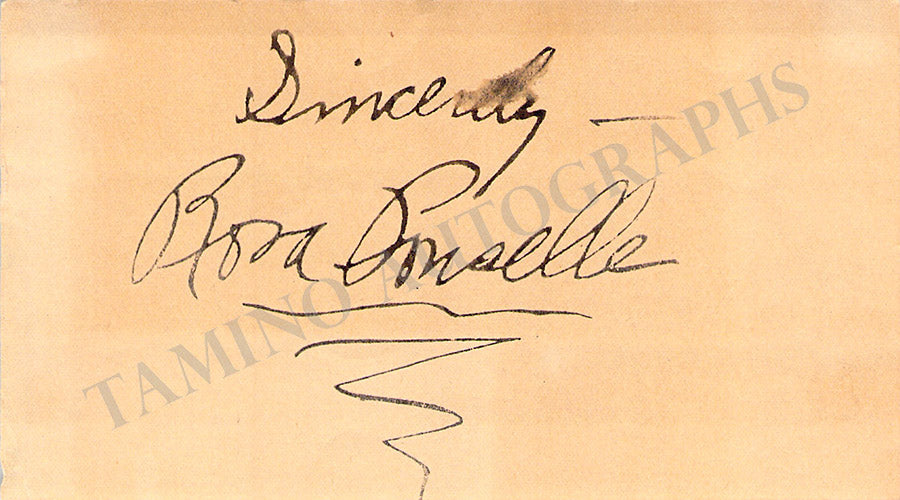 Sincerely —
Rosa Ponselle
TAMINO AUTOGRAPHS